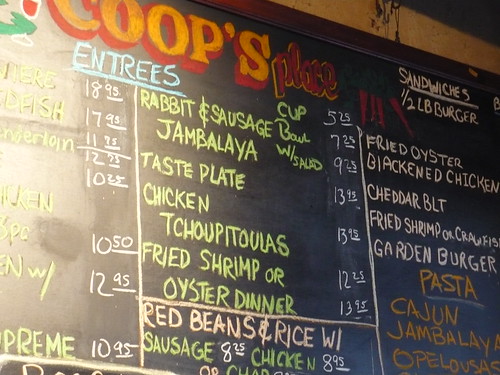 COOP'S place
ENTREES
18.95
17.95
11.25
12.75
10.25
3pc
10.50
W/
12.95
10.95
RABBIT & SAUSAGE
JAMBALAYA
CUP 5.25
Bowl 7.25
W/SALAD 9.25
TASTE PLATE 13.95
CHICKEN
TCHOUPITOULAS 13.95
FRIED SHRIMP OR 12.25
OYSTER DINNER 13.95
RED BEANS & RICE W/
SAUSAGE 8.25 CHICKEN 8.95
OR
SANDWICHES
1/2 LB BURGER
FRIED OYSTER
BLACKENED CHICKEN
CHEDDAR BLT
FRIED SHRIMP OR CRAWFIS
GARDEN BURGER
PASTA
CAJUN
JAMBALAYA
OPELOUSA